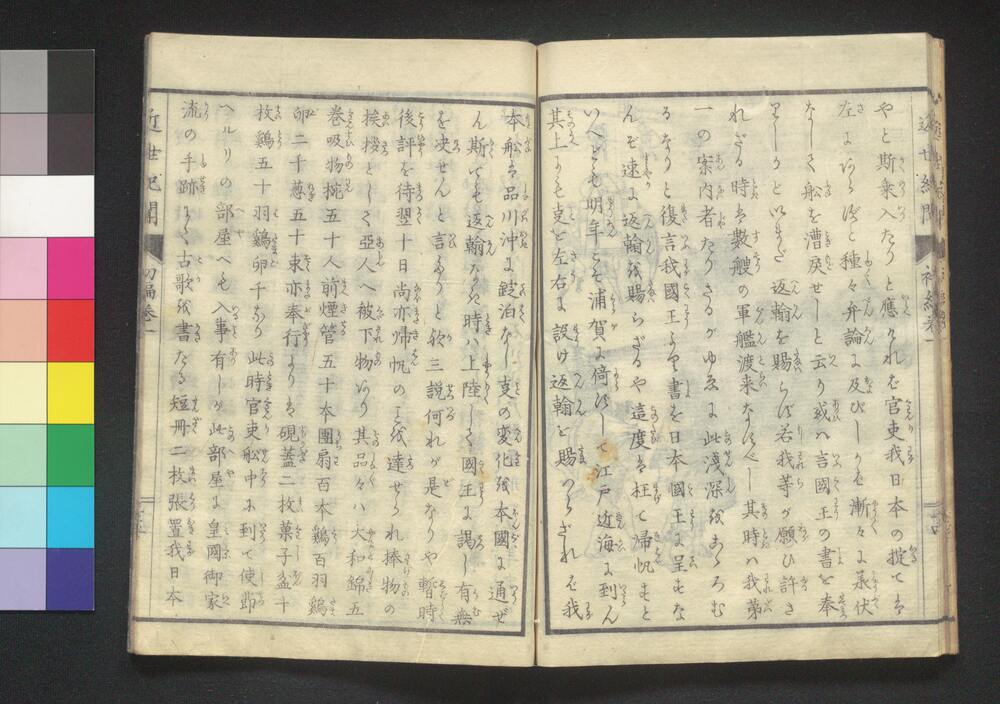 やと斯乗入たりと應けれは官吏我日本の掟ては
左にあらずと種々弁論に及びしかば漸々に承伏
なしく舩を漕戻せしと云り或ハ言國王の書を奉
りしかといまだ返翰を賜らば若我等が願ひ許さ
れざる時は數艘の軍艦渡来なすべし其時ハ我第
一の案内者たりさるがゆゑに此浅深をあらむ
るなりと復言我國王より書を日本國王に呈すな
んぞ速に返翰を賜らざるや這度は枉て帰帆すと
いへども明年こそ浦賀に倚ずして江戸近海に到ん
其上にも吏を左右に設け返翰を賜わらざれば我
本舩は品川沖に錠泊なし吏の変化を本國に通ぜ
ん斯ても返翰なき時ハ上陸して國王に謁し有無
を决せんと言りと欤三説何れが是なりや暫時
後評を待翌十日尚亦帰帆のを達せられ捧物の
挨拶として亞人へ被下物あり其品々ハ大和錦五
巻吸物椀五十人前煙管五十本團扇百本鶏百羽鶏
卵二千葱五十束亦奉行よりは硯蓋二枚菓子盆十
枚鶏五十羽鶏卵千なり此時官吏舩中に到て使節
ヘルリの部屋へも入事有しが此部屋に皇國御家
流の手跡にて古歌を書たる短冊二枚張置我日本
近世紀聞 初編巻一